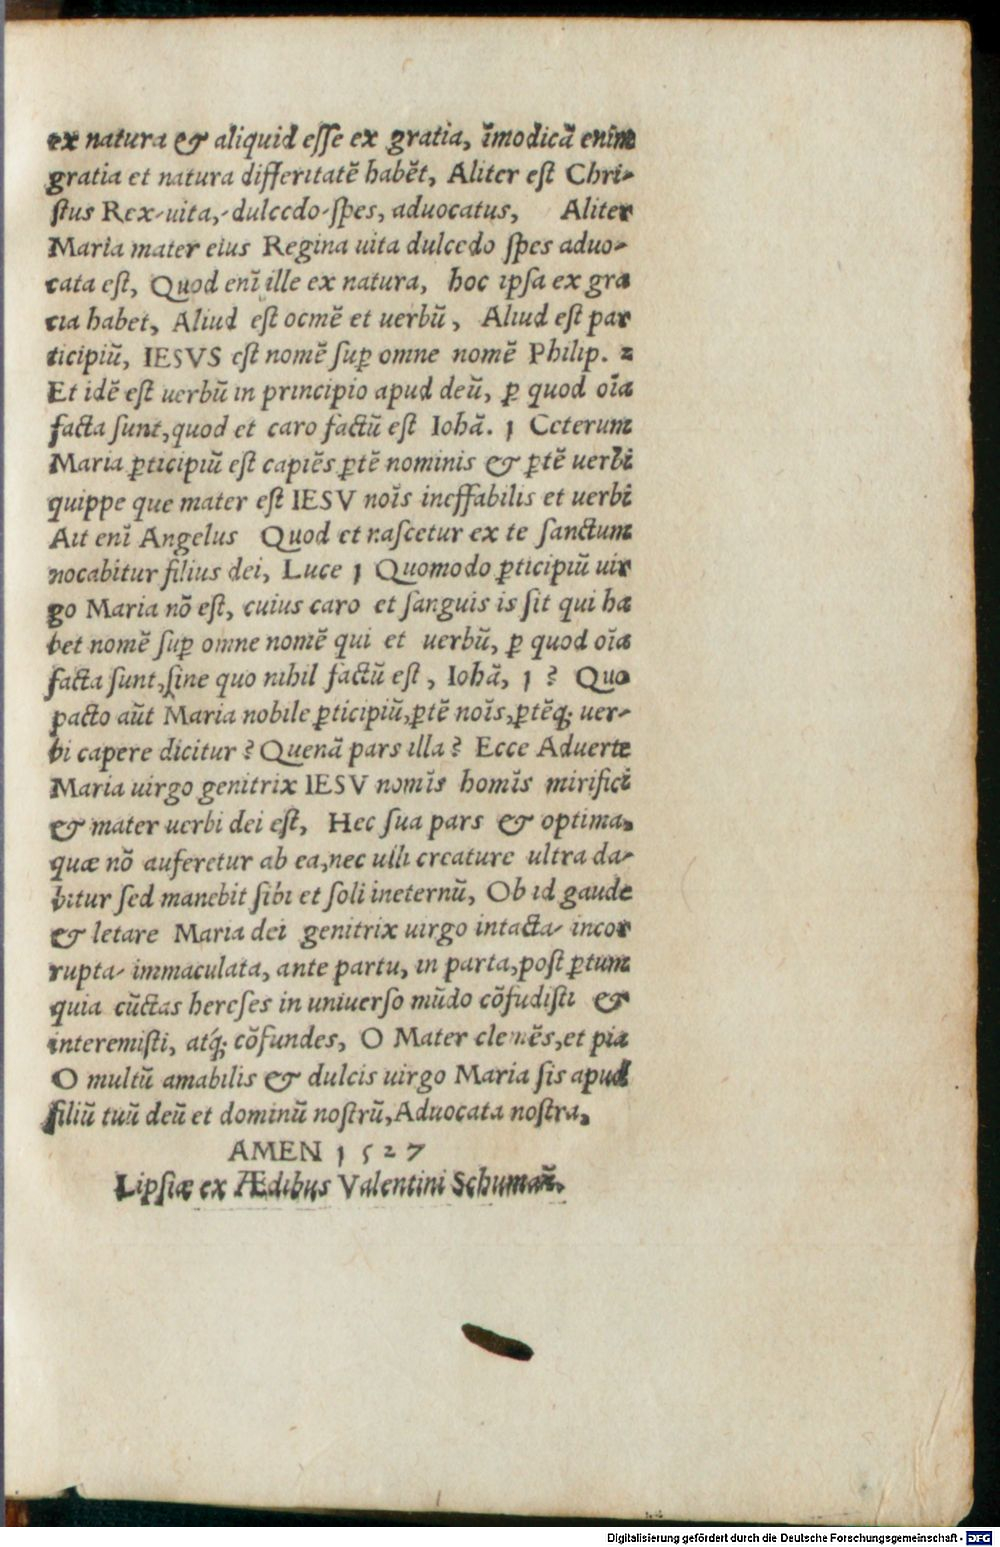 ex natura & aliquid eſſe ex gratia, īmodicā enim
gratia et natura differitatē habēt, Aliter eſt Chri-
ſtus Rex-uita,-dulcedo-ſpes, aduocatus, Aliter
Maria mater eius Regina uita dulcedo ſpes aduo-
cata eſt, Quod enī ille ex natura, hoc ipſa ex gra
tia habet, Aliud eſt ocmē et uerbū, Aliud eſt par
ticipiū, IESVS eſt nomē ſuꝑ omne nomē Philip. 2
Et idē eſt uerbū in principio apud deū, ꝑ quod oīa
facta ſunt, quod et caro factū eſt Iohā. 1 Ceterum
Maria ꝑticipiū eſt capiēs ꝑtē nominis & ꝑtē uerbi
quippe que mater eſt IESV noīs ineffabilis et uerbi
Ait enī Angelus Quod et naſcetur ex te ſanctum
nocabitur filius dei, Luce 1 Quomodo ꝑticipiū uir
go Maria nō eſt, cuius caro et ſanguis is ſit qui ha
bet nomē ſuꝑ omne nomē qui et uerbū, ꝑ quod oīa
facta ſunt, ſine quo nihil factū eſt, Iohā, 1 ? Quo
pacto aūt Maria nobile ꝑticipiū, ꝑtē noīs, ꝑtēq; uer-
bi capere dicitur ? Quenā pars illa ? Ecce Aduerte
Maria uirgo genitrix IESV nomīs homīs mirifici
& mater uerbi dei eſt, Hec ſua pars & optima,
quæ nō auferetur ab ea, nec ulli creature ultra da-
bitur ſed manebit ſibi et ſoli ineternū, Ob id gaude
& letare Maria dei genitrix uirgo intacta- incor
rupta- immaculata, ante partu, in parta, poſt ꝑtum
quia cūctas hereſes in uniuerſo mūdo cōfudiſti &
interemiſti, atq́; cōfundes, O Mater clemēs, et pia
O multū amabilis & dulcis uirgo Maria ſis apud
filiū tuū deū et dominū noſtrū, Aduocata noſtra,
AMEN 1527
Lipſiæ ex Ædibus Valentini Schumañ.
Digitalisierung gefördert durch die Deutsche Forschungsgemeinschaft - DFG